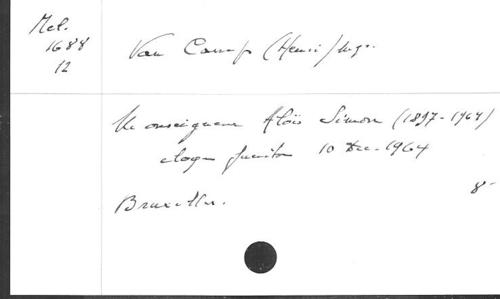 Mel.
1688
12
Van Camp (Henri) Mgr.
Monseigneur Aloïs Simon (1897-1964)
eloge funèbre 10 Dec. 1964
8°
Bruxelles.